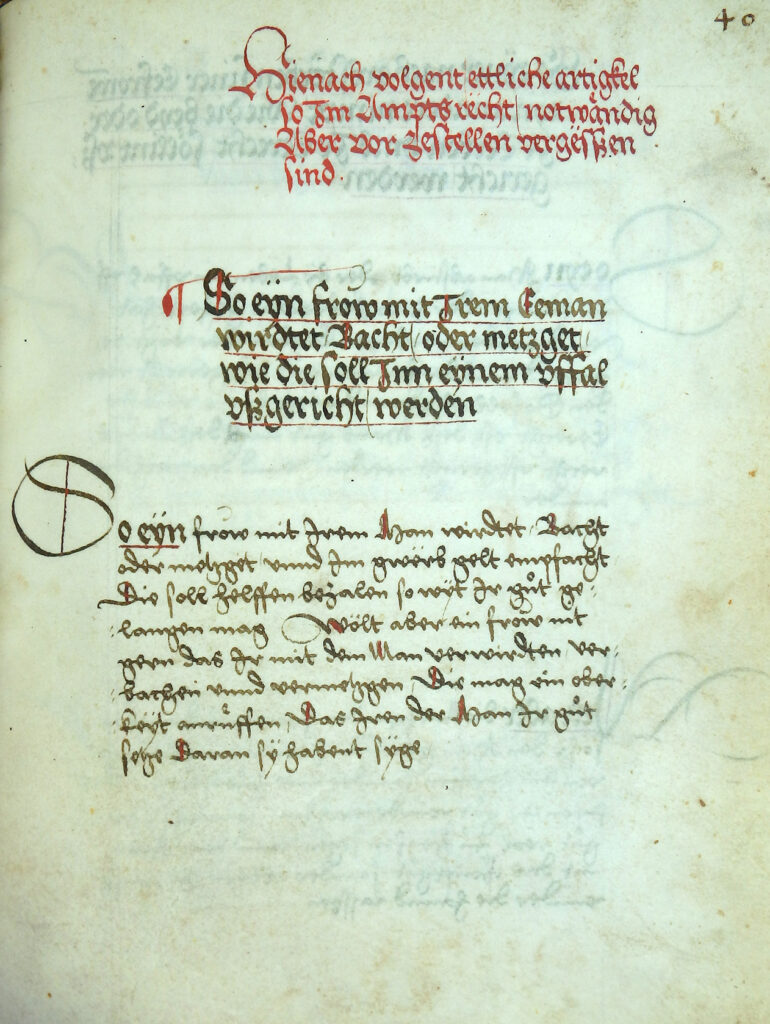 40
Hienach volgent ettliche artigkel
so Im Amptsrecht notwändig
Aber vor zestellen vergëssen
sind.
¶ So eÿn frow mit Irem Eeman
wirdtet, Bacht, oder metzget,
wie die soll Inn eÿnem vffal
vßgericht werden
So eÿn frow mit Irem Man wirdtet, Bacht
oder metzget vnnd Im gwërb gelt empfacht
Die soll helffen bezalen so wÿt Ir gůt ge-
-langen mag Wölt aber ein frow nit
gern das Ir mit dem Man verwirdten ver-
-bachen vnnd vermetzgen, Die mag ein ober-
-keÿt anrůffen, Das Iren der Man Ir gůt
setze Daran sÿ habent sÿge